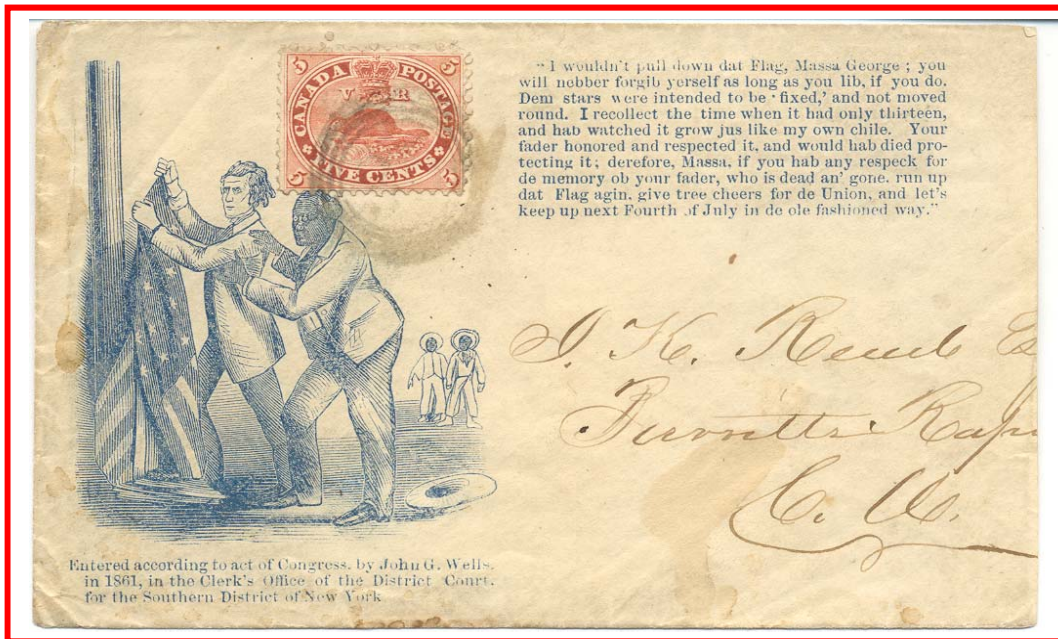 5 5
CANADA POSTAGE
V R
FIVE CENTS
5 5
"I wouldn't pull down dat Flag, Massa George; you
will nebber forgib yerself as long as you lib, if you do.
Dem stars were intended to be 'fixed,' and not moved
round. I recollect the time when it had only thirteen,
and hab watched it grow jus like my own chile. Your
fader honored and respected it, and would hab died pro-
tecting it; derefore, Massa, if you hab any respeck for
de memory ob your fader, who is dead an' gone. run up
dat Flag agin, give tree cheers for de Union, and let's
keep up next Fourth of July in de ole fashioned way."
J. K.
C. W.
Entered according to act of Congress, by John G. Wells,
in 1861, in the Clerk's Office of the District Court,
for the Southern District of New York